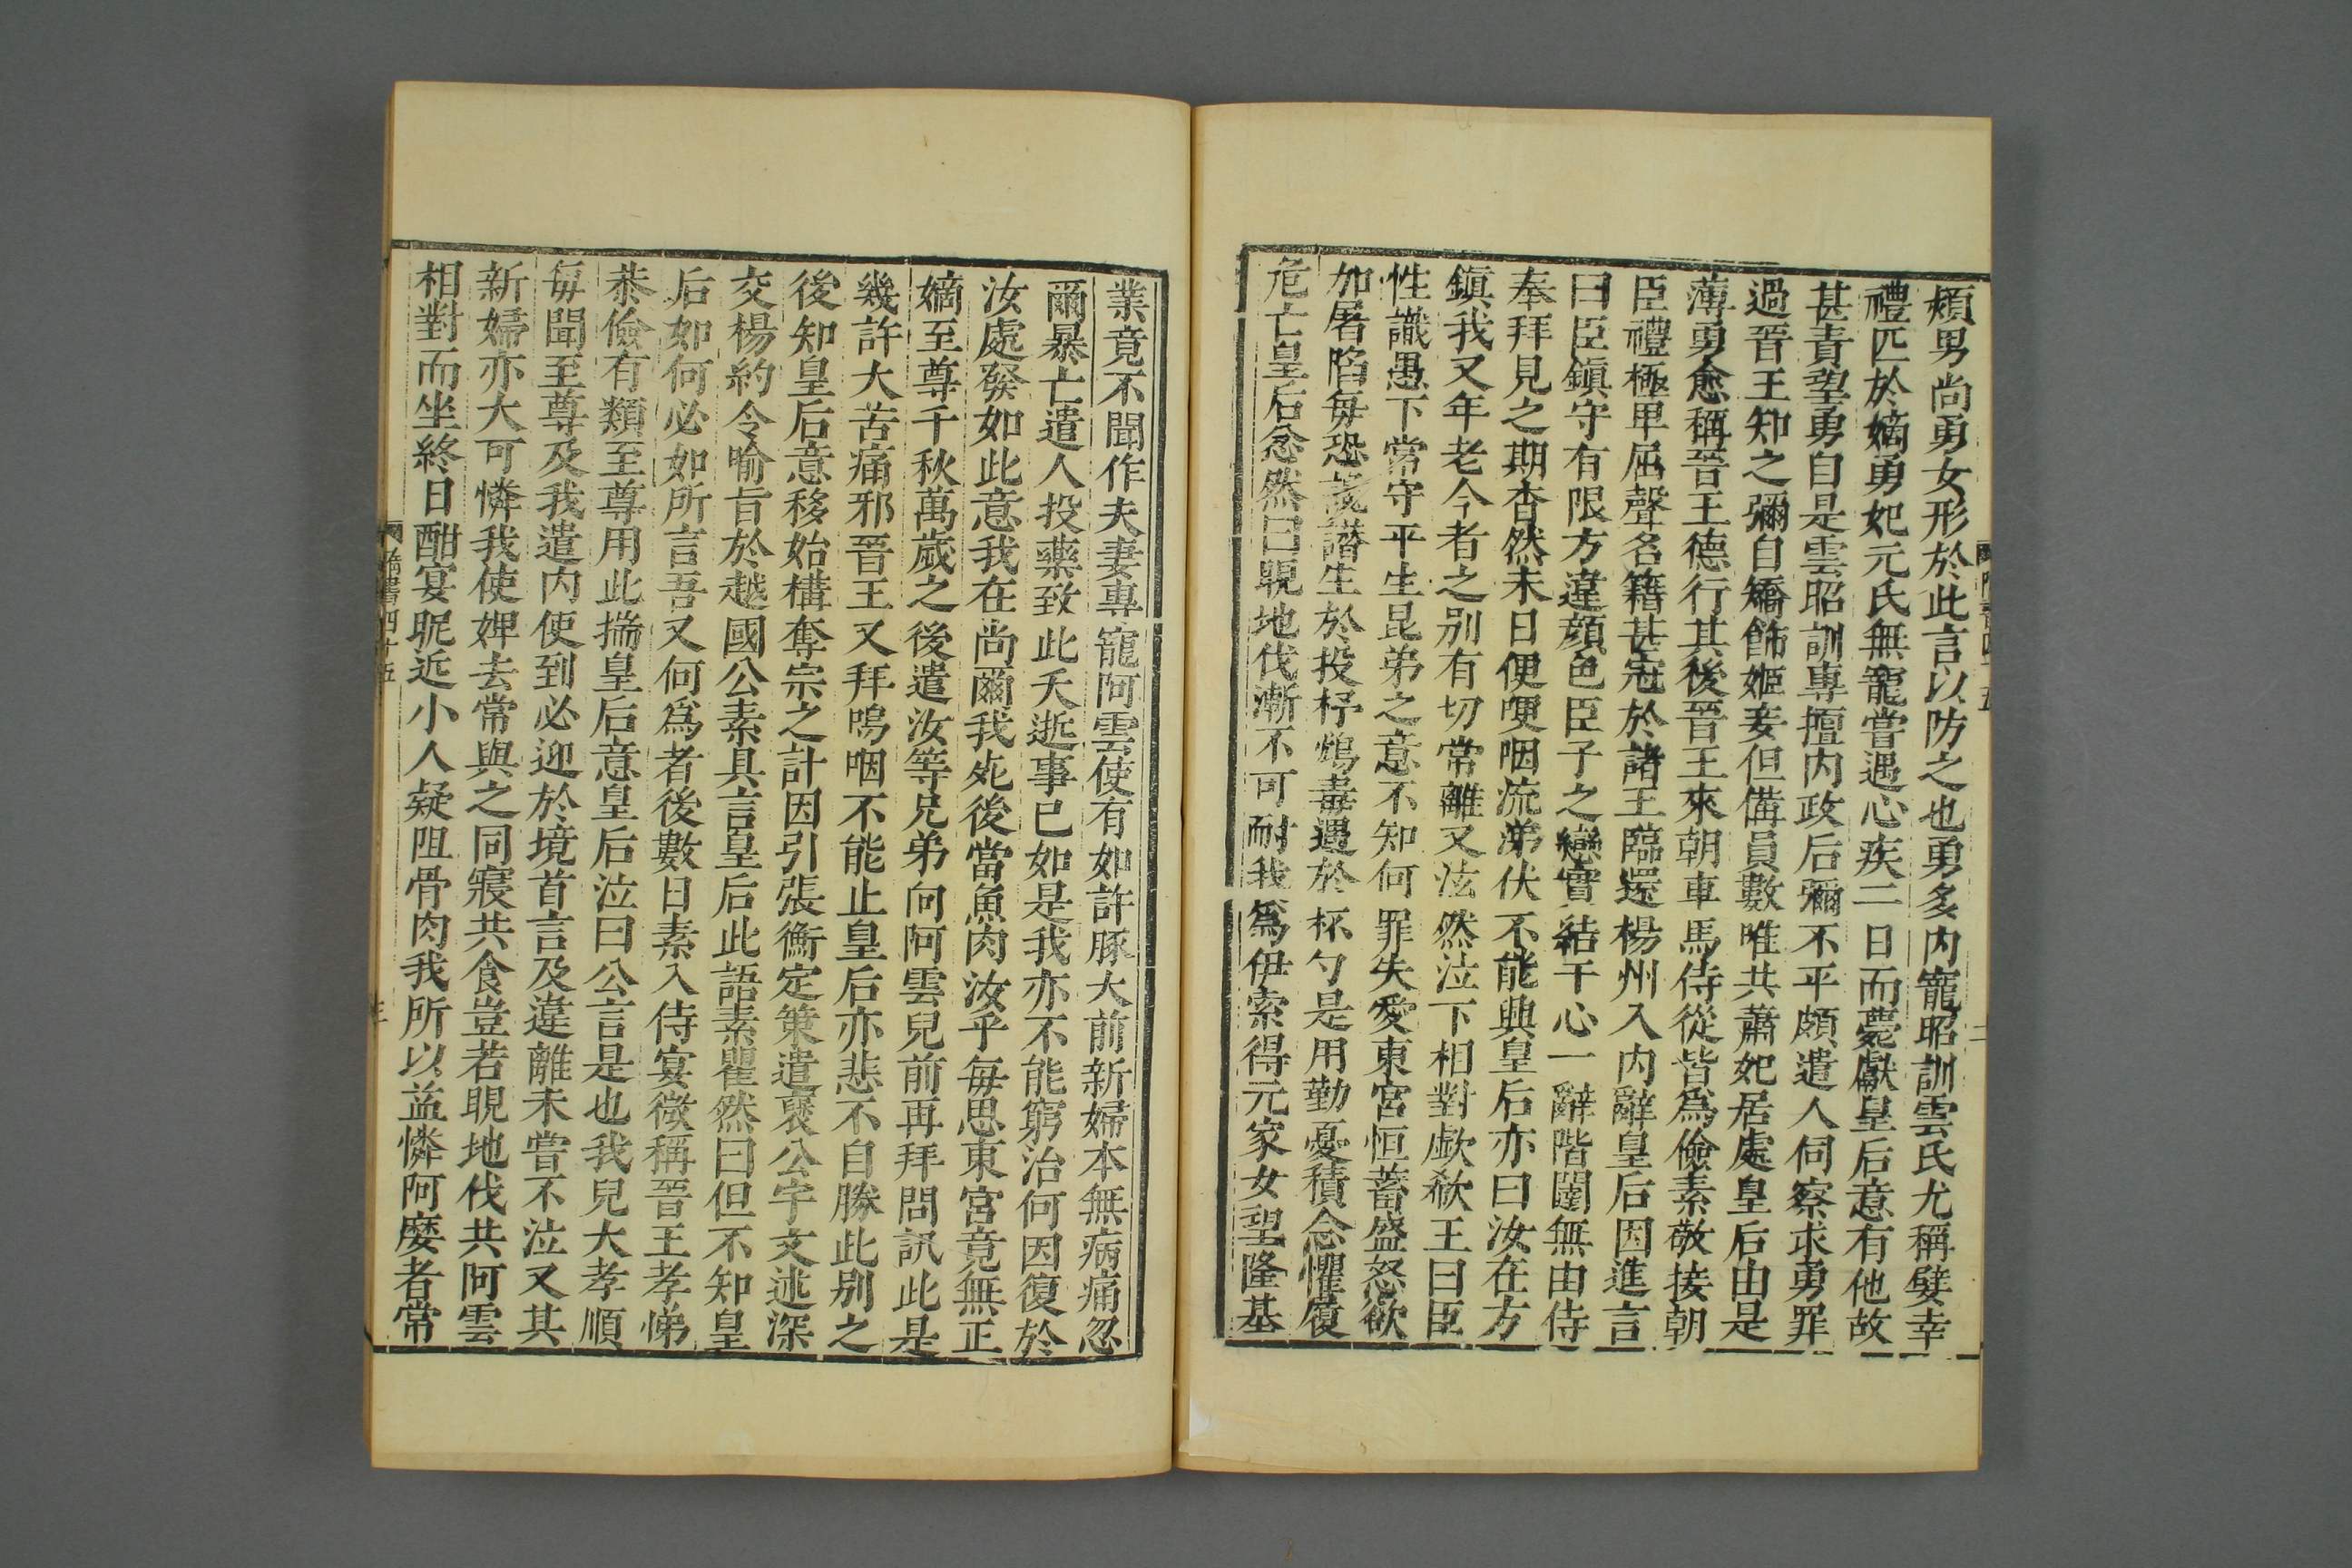 熲男尚勇女形於此言以防之也勇多内寵昭訓雲氏尤稱嬖幸
禮匹於嫡勇妃元氏無寵嘗遇心疾二日而薨獻皇后意有他故
甚責望勇自是雲昭訓專擅内政后彌不平頗遣人伺察求勇罪
過晉王知之彌自矯飾姬妾但備員數唯共蕭妃居處皇后由是
薄勇愈稱晉王德行其後晉王來朝車馬侍從皆爲儉素敬接朝
臣禮極卑屈聲名籍甚冠於諸王臨還楊州入内辭皇后因進言
曰臣鎮守有限方違顔色臣子之戀實結于心一辭階闥無由侍
奉拜見之期杳然未日便哽咽流涕伏不能興皇后亦曰汝在方
鎮我又年老今者之别有切常離又泫然泣下相對歔欷王曰臣
性識愚下常守平生昆弟之意不知何罪失愛東宮恒蓄盛怒欲
加屠陷每恐讒譖生於投杼鴆毒遇於杯勺是用勤憂積念懼履
危亡皇后忿然曰睍地伐漸不可耐我爲伊索得元家女望隆基
業竟不聞作夫妻專寵阿雲使有如許豚犬前新婦本無病痛忽
爾暴亡遣人投藥致此夭逝事已如是我亦不能窮治何因復於
汝處發如此意我在尚爾我死後當魚肉汝乎每思東宮竟無正
嫡至尊千秋萬歲之後遣汝等兄弟向阿雲兒前再拜問訊此是
幾許大苦痛邪晉王又拜嗚咽不能止皇后亦悲不自勝此别之
後知皇后意移始構奪宗之計因引張衡定策遣褒公宇文述深
交楊約令喻旨於越國公素具言皇后此語素瞿然曰但不知皇
后如何必如所言吾又何爲者後數日素入侍宴微稱晉王孝悌
恭儉有類至尊用此揣皇后意皇后泣曰公言是也我兒大孝順
每聞至尊及我遣内使到必迎於境首言及違離未嘗不泣又其
新婦亦大可憐我使婢去常與之同寢共食豈若睍地伐共阿雲
相對而坐終日酣宴昵近小人疑阻骨肉我所以益憐阿麼者常
隋書四十五